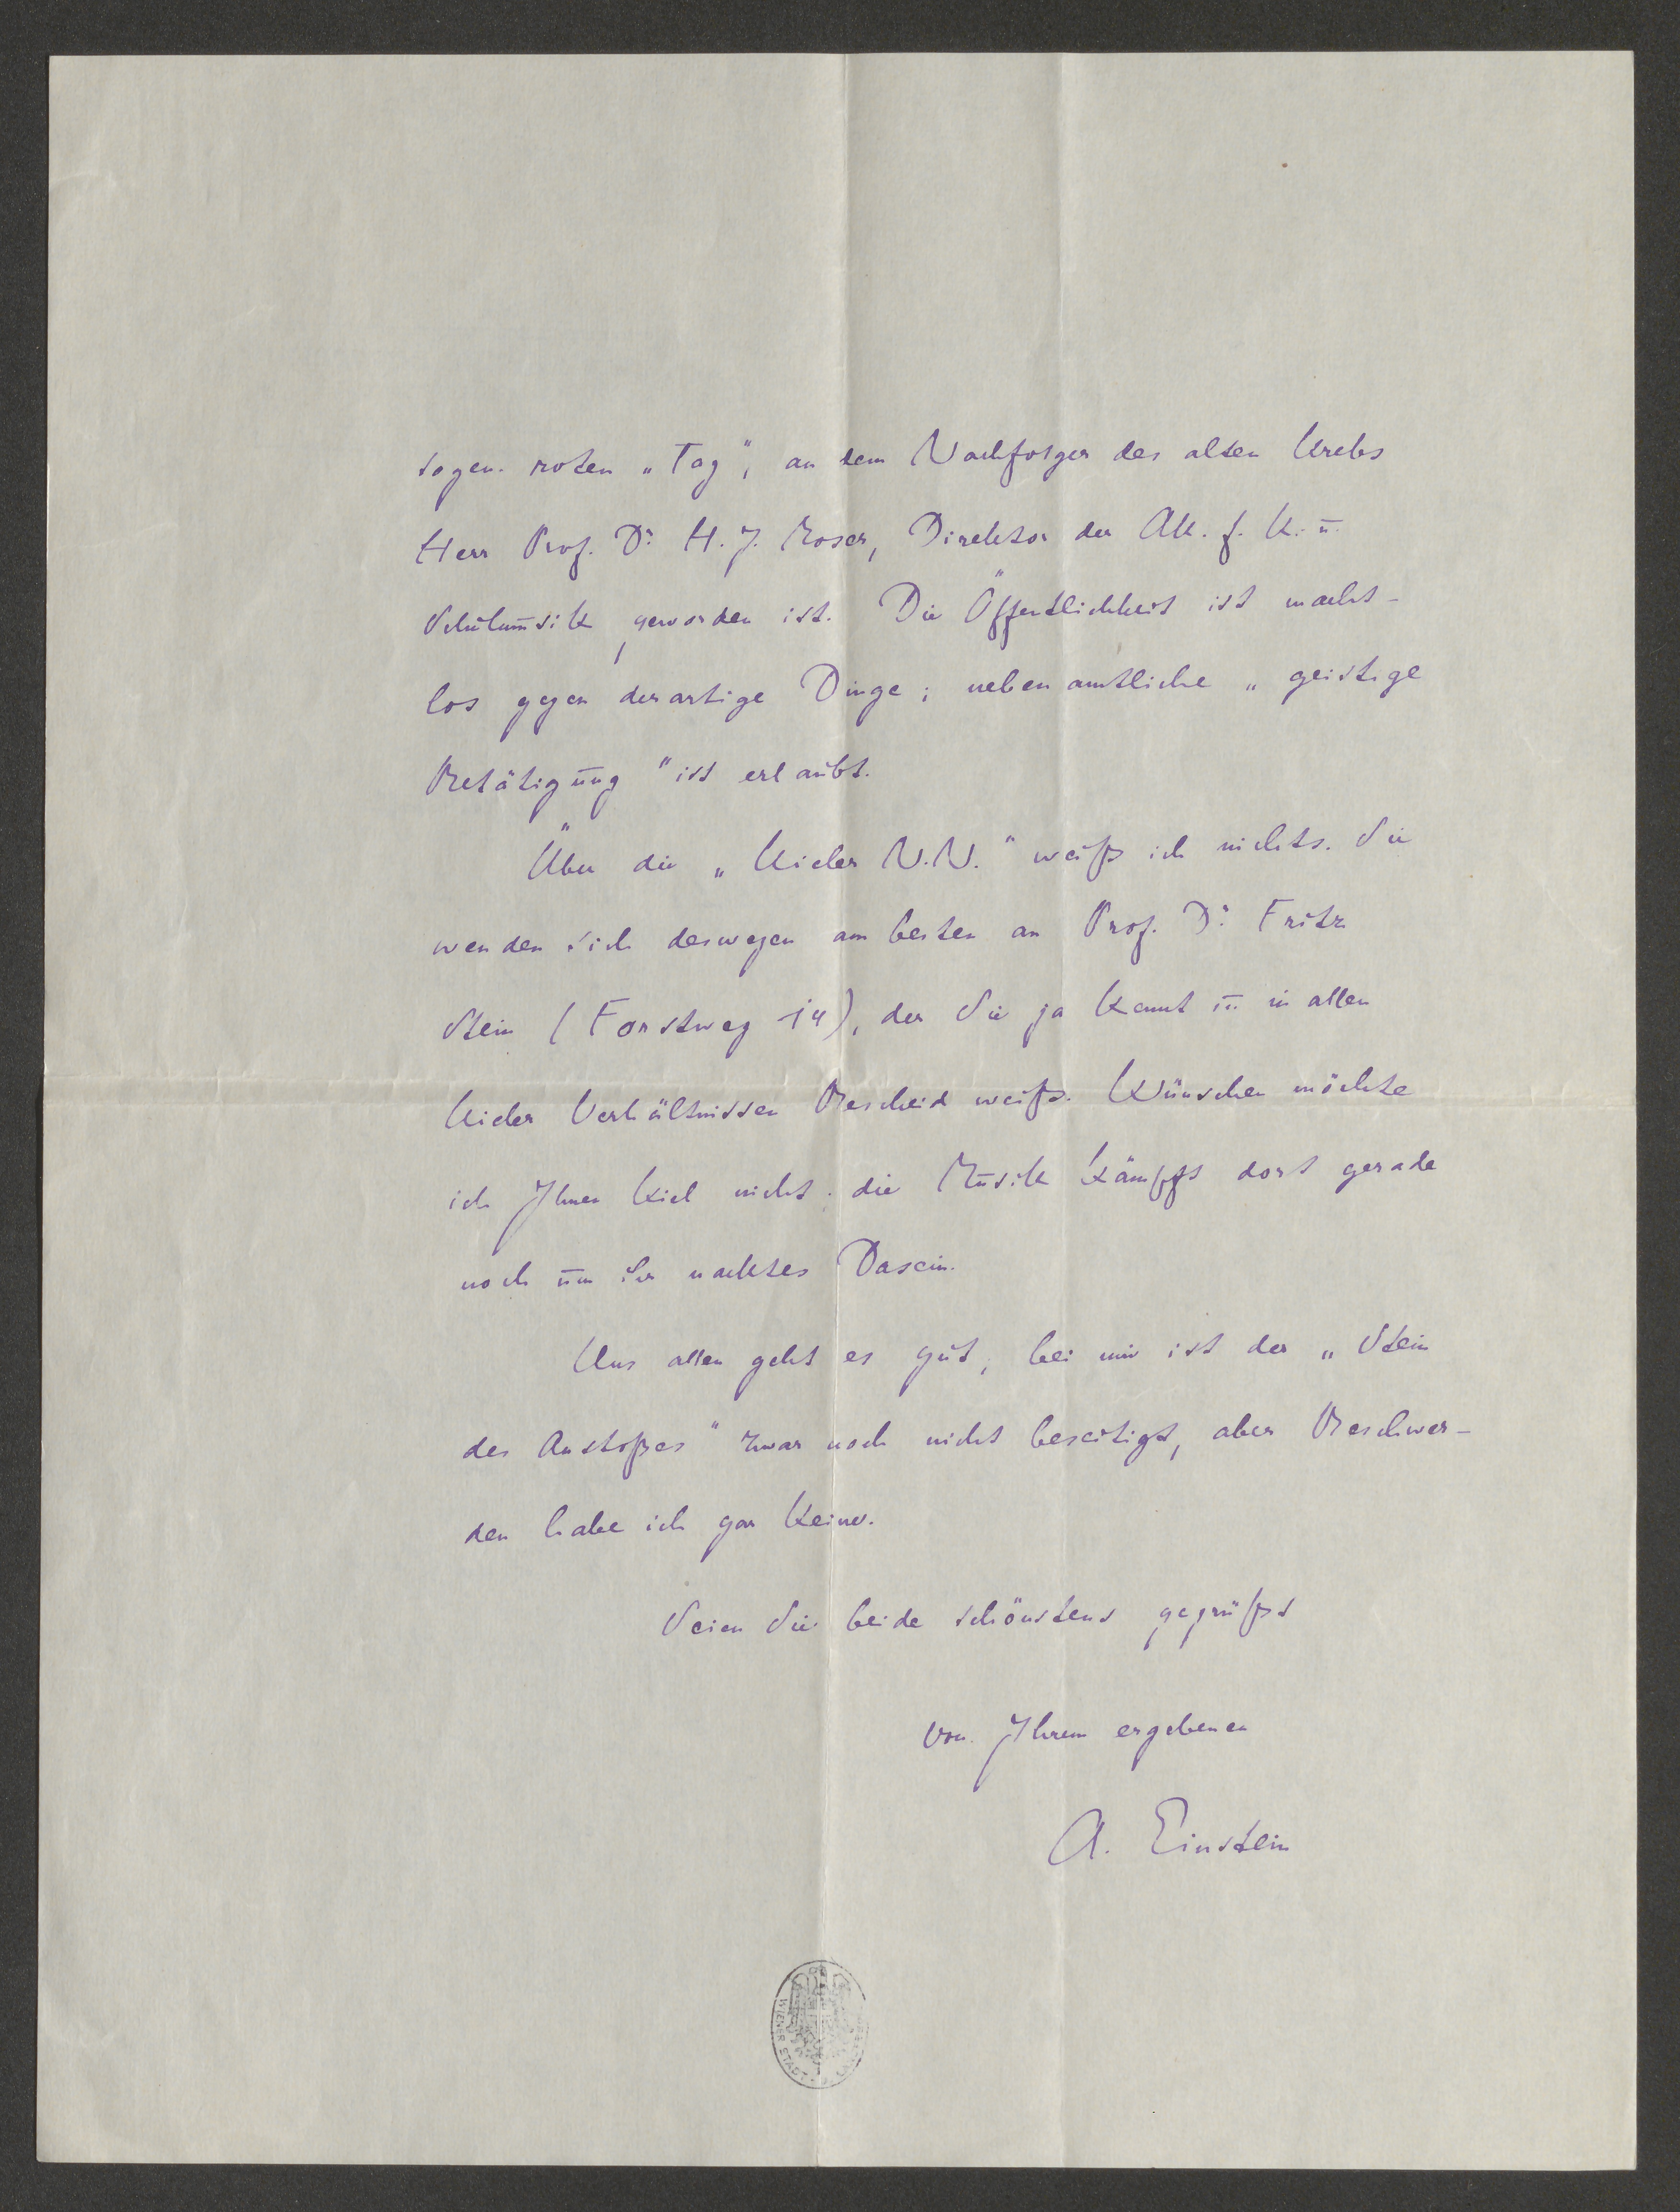 sogen. roten „Tag“, an dem Nachfolger des alten Krebs
Herr Prof. Dr. H. J. Moser, Direktor der Ak. f. K. u.
Schulmusik geworden ist. Die Öffentlichkeit ist macht-
los gegen derartige Dinge; nebenamtliche „geistige
Betätigung“ ist erlaubt.
Über die „Kieler N.N.“ weiß ich nichts. Sie
wenden sich deswegen am besten an Prof. Dr. Fritz
Stein (Forstweg), der Sie ja kennt u. in allen
Kieler Verhältnissen Bescheid weiß. Wünschen möchte
ich Ihnen Kiel nicht; die Musik kämpft dort gerade
noch um ihr nacktes Dasein.
Uns allen geht es gut, bei mir ist der „Stein
des Anstoßes“ zwar noch nicht beseitigt, aber Beschwer-
den habe ich gar keine.
Seien Sie beide schönstens gegrüßt
von Ihrem ergebenen
A. Einstein
WIENER STADT